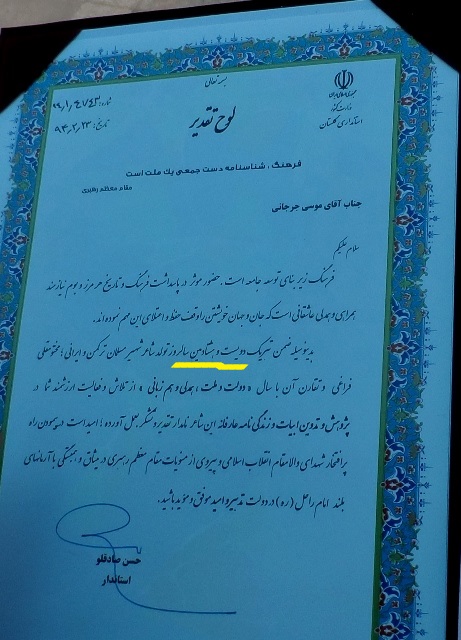 بسمه تعالی
جمهوری اسلامی ایران
وزارت کشور
استانداری گلستان
شماره:
تاریخ: ۹۴,۲,۲۳
لوح تقدیر
فرهنگ ، شناسنامه دست جمعی یک ملت است
مقام معظم رهبری
جناب آقای موسی جرجانی
سلام علیکم
فرهنگ زیر بنای توسعه جامعه است . حضور موثر در پاسداشت فرهنگ و تاریخ هر مرز و بوم نیازمند
همراهی و همدلی عاشقانی است که جان و جهان خویشتن را وقف حفظ و اعتلای این مهم نموده‌اند.
بدینوسیله ضمن تبریک دویست و هشتادمین سالروز تولد شاعر شهیر مسلمان ترکمن و ایرانی ؛ مختومقلی
فراغی و تقارن آن با سال « دولت و ملت ، همدلی و هم زبانی » از تلاش و فعالیت ارزشمند شما در
پژوهش و تدوین ابیات و زندگی نامه عارفانه این شاعر نامدار تقدیر و تشکر بعمل آورده ؛ امید است در پیمودن راه
پر افتخار شهدای والامقام انقلاب اسلامی و پیروی از منویات مقام معظم رهبری در میثاق و همبستگی با آرمانهای
بلند امام راحل (ره) در دولت تدبیر و امید موفق و موید باشید.
حسن صادقلو
استاندار